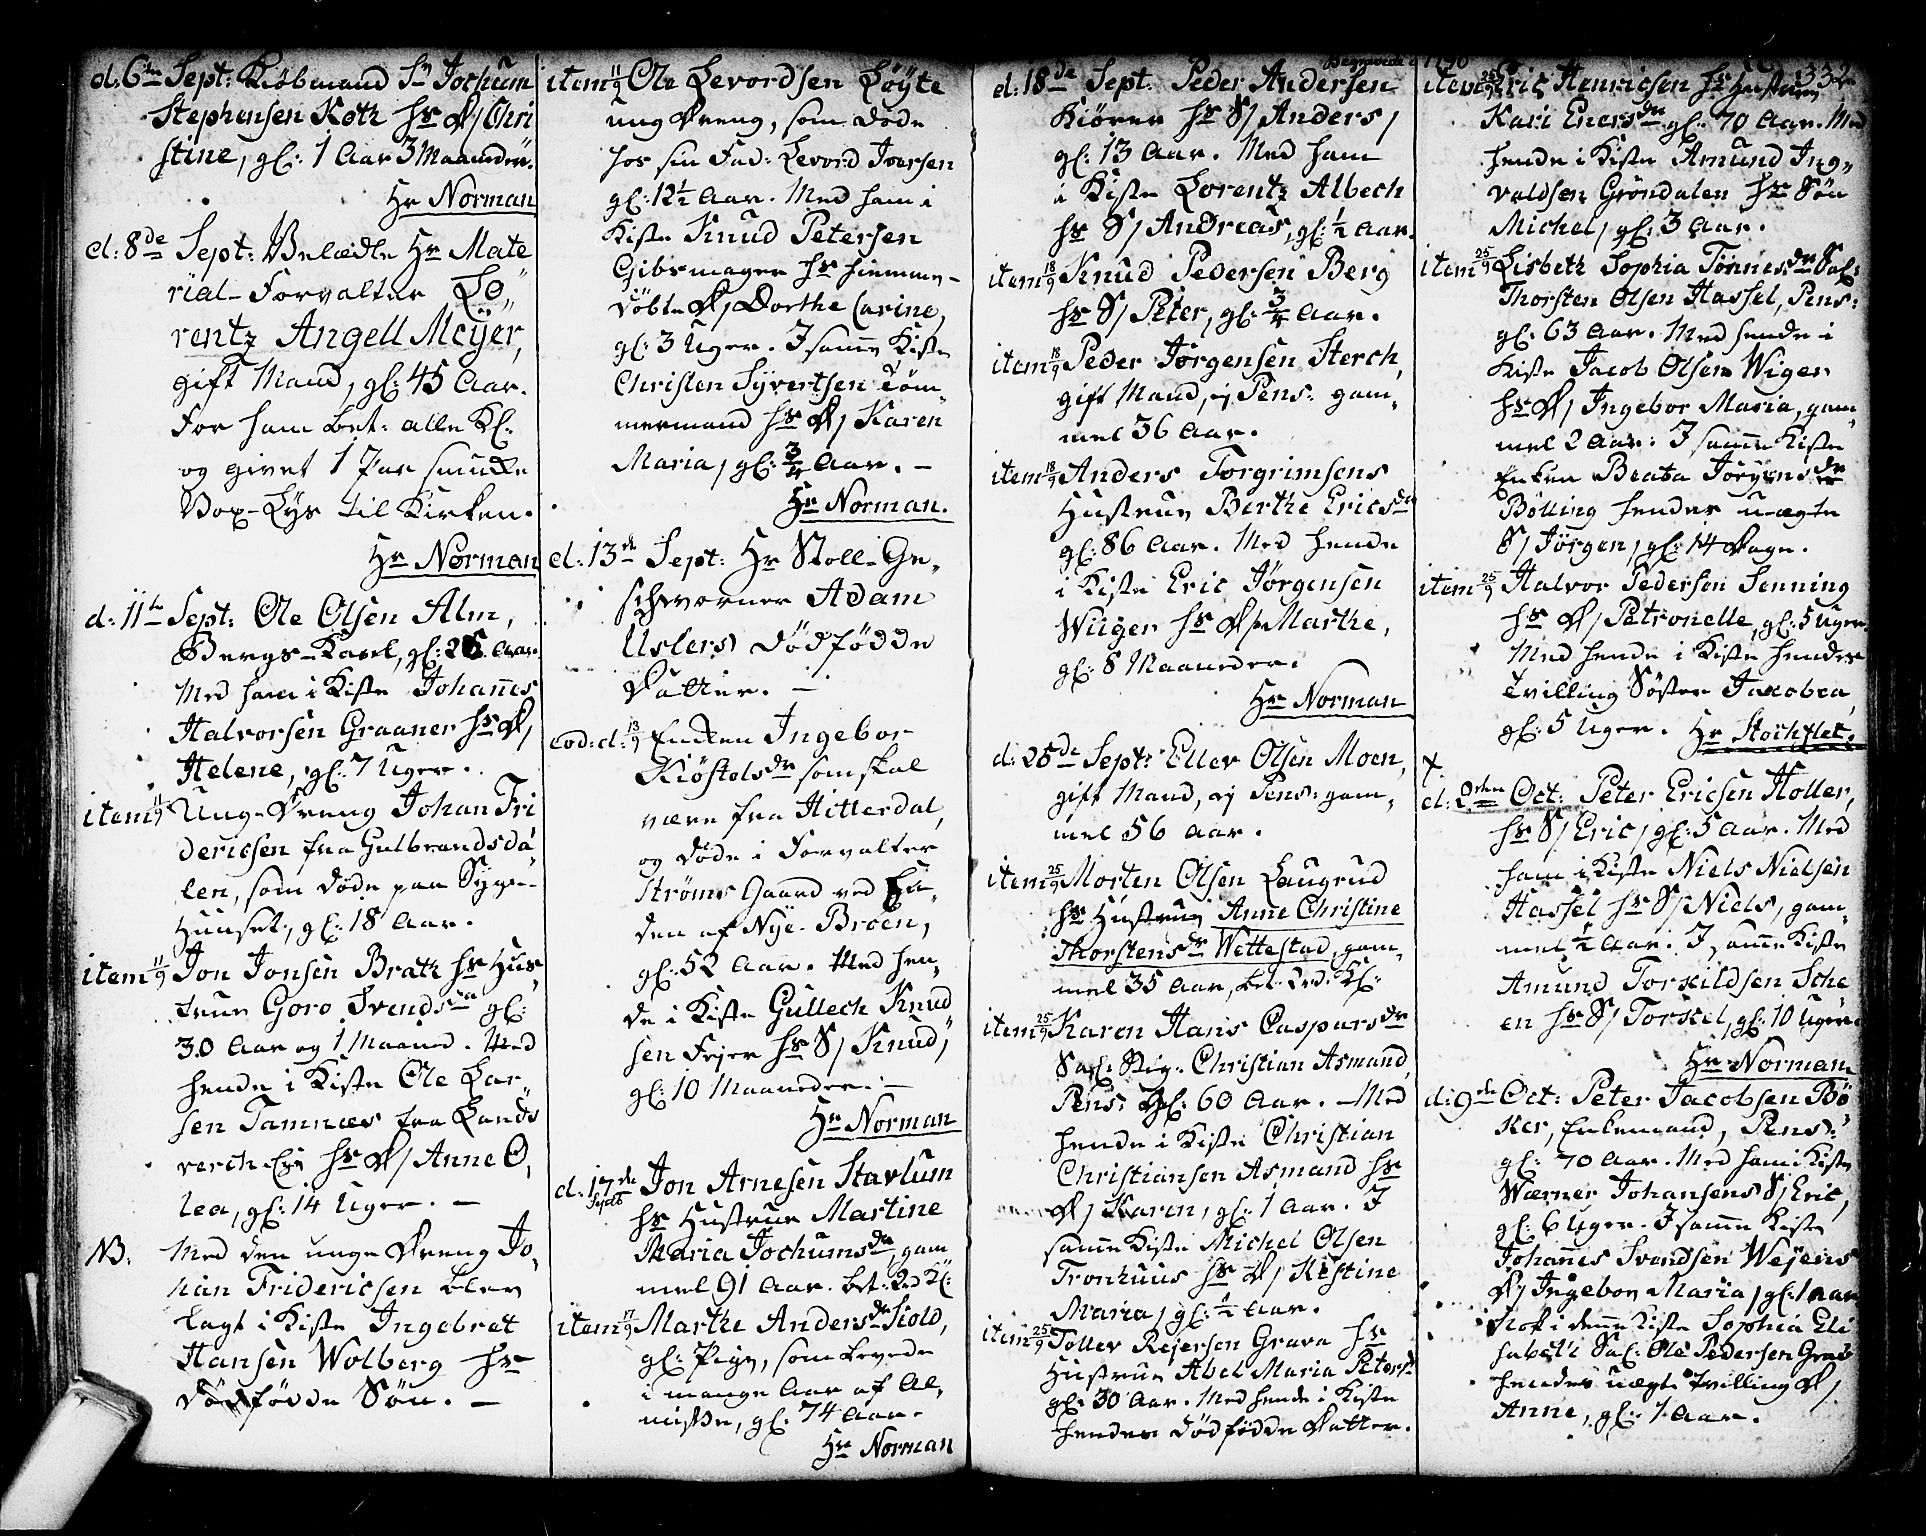 d: 6te Sept: Kiöbmand Sr Jochum
Stephensen Koth hs D/ Chri
stine, gl: 1 Aar 3 Maaneder.
Hr Norman
d: 8de Sept: Velædle Hr Mate
rial-Forvalter Lo„
rentz Angell Meÿer,
gift Mand, gl: 45 Aar.
For ham bet: alle Kl:
og givet 1 Par smukke
Vox-Lÿs til Kirken.
Hr Norman
d: 11te Sept: Ole Olsen Alm,
Bergs-Karl, gl: Aar.
Med ham i Kiste Johannes
Halvorsen Graaner hs D/
Helene, gl: 7 Uger.
item 11/9 Ung-Dreng Johan Fri
dericsen fra Gulbrandsda
len, som döde paa Syge-
Huuset, gl: 18 Aar.
item 11/9 Jon Jonsen Brath hs Hus„
true Goro Svendsda gl:
30 Aar og 1 Maaned. Med
hende i Kiste Ole Lar„
sen Tamnæs fra Lands
verch hs D/ Anne O„
lea, gl: 14 Uger. —
NB. Med den unge Dreng Jo„
han Fridericsen blev
lagt i Kiste Ingebret
Hansen Wolberg hs
Dödfödde Sön. —
item 11/9 Ole Levordsen Löÿte
ung Dreng, som döde
hos sin Fad: Levord Iversen
gl: 12½ Aar. Med ham i
Kiste Knud Petersen
Gibsmager hs hiemme-
döbte D/ Dorthe Carine,
gl: 3 Uger. I samme Kiste
Christen Sÿvertsen Töm„
mermand hs D/ Karen
Maria, gl: 3/4 Aar. —
Hr Norman.
d: 13de Sept: Hr Stoll-Ge„
schworner Adam
Uslers Dödfödde
Datter. —
eod: d: 13/9 Enken Ingebor
Kiöstolsdr som skal
være fra Hitterdal,
og döde i Forvalter
Ströms Gaard ved En„
den af Nÿe-Broen,
gl: 52 Aar. Med hen„
de i Kiste Gullech Knud
sen Fejer hs S/ Knud,
gl: 10 Maaneder. —
Hr Norman
d: 17de Sept: Jon Arnesen Stavlum
hs Hustrue Martine
Maria Jochumsdr, gam
mel 91 Aar. bet: 2de Kl:
item 17/9 Marthe Andersdr Kold,
gl: Pige, som levede
i mange Aar af Al„
misse, gl: 74 Aar.
Hr Norman
Begravede 1790
d: 18de Sept: Peder Andersen
Kiörer hs S/ Anders,
gl: 13 Aar. Med ham
i Kiste Lorentz Albech
hs S/ Andreas, gl: ½ Aar.
item 18/9 Knud Pedersen Berg
hs S/ Peter, gl: 3/4 Aar.
item 18/9 Peder Jörgensen Sterch,
gift Mand, ej Pens: gam„
mel 36 Aar.
item 18/9 Anders Torgrimsens
Hustrue Berthe Ericsda
gl: 86 Aar. Med hende
i Kiste Eric Jörgensen
Wiiger hs D/ Marthe,
gl: 8 Maaneder.
Hr Norman
d: 25de Sept: Eller Olsen Moen,
gift Mand, ej Pens: gam„
mel 56 Aar.
item 25/9 Morten Olsen Laugrud
hs Hustrue Anne Christine
Thorstensdr Wettestad, gam„
mel 35 Aar, bet 2de Kl:
item 25/9 Karen Hans Caspersdr
Sal: Stig: Christian Asmand,
Pens: gl: 60 Aar. — Med
hende i Kiste Christian
Christiansen Asmand hs
D/ Karen, gl: 1 Aar. I
samme Kiste Michel Olsen
Tronhuus hs D/ Kestine
Maria, gl: ½ Aar.
item 25/9 Tollev Rejersen Grava hs
Hustrue Abel Maria Petersd
gl: 30 Aar. Med hende i Kiste
hendes Dödfödde Datter.
332
item 25/9 Eric Henricsen hs Hustrue
Kari Enersdr gl: 70 Aar. Med
hende i Kiste Amund Ing„
valdsen Gröndalen hs Sön
Michel, gl: 3 Aar.
item 25/9 Lisbeth Sophia Tönnesdr Sal:
Thorsten Olsen Hassel, Pens:
gl: 63 Aar. Med hende i
Kiste Jacob Olsen Wiger
hs D/ Ingebor Maria, gam„
mel 2 Aar. I samme Kiste
Enken Beata Jörgensdr
Bölling hendes uægte
S/ Jörgen, gl: 14 Dage.
item 25/9 Halvor Pedersen Senning
hs D/ Petronelle, gl: 5 Uger.
Med hende i Kiste hendes
Tvilling Söster Jacobea,
gl: 5 Uger. Hr Stochflet.
d: 2den Oct: Peter Ericsen Holler,
hs S/ Eric, gl: 5 Aar. Med
ham i Kiste Niels Nielsen
Hassel hs S/ Niels, gam„
mel ½ Aar. I samme Kiste
Amund Torkildsen Sche
en hs S/ Torkel, gl: 10 Uger.
Hr Norman
d: 9de Oct: Peter Jacobsen Bö
ker, Enkemand, Pens:
gl: 70 Aar. Med ham i Kiste
Wærner Johansens S/ Eric,
gl: 6 Uger. I samme Kiste
Johannes Svendsen Wejens
D/ Ingebor Maria, gl: 1 Aar
Nok i denne Kiste Sophia Eli
sabeth Sal: Ole Pedersen Grav
hendes uægte Tvilling D/
Anne, gl: 1 Aar.